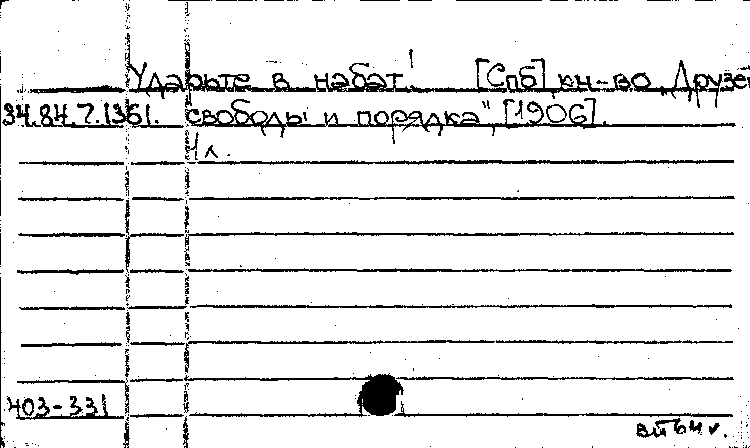 Ударьте в набат! [Спб] кн-во „Друзей
34.84.7.1361. свободы и порядка", [1906].
1 л.
403-331